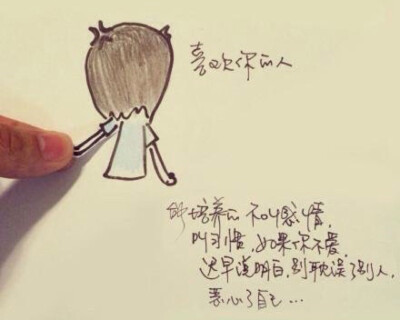 喜欢你的人
能培养的不叫感情,
叫习惯,如果你不爱,
迟早说明白,别耽误了别人,
恶心了自己...